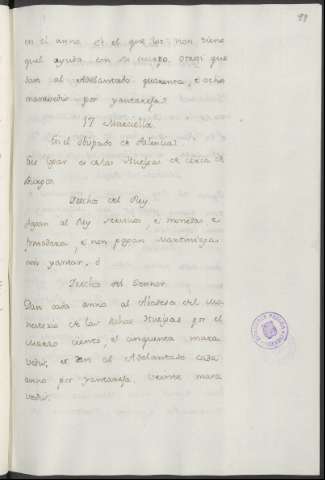 99
en el anno et el que los non tiene
quel ayuda con su cuerpo. Otrosi que
dan al Adelantado quarenta, e ocho
maravedis por yantarejas.
17 Mazuella.
En el Obispado de Palencia.
Este logar es de las Huelgas de cerca de
Burgos
Derechos del Rey
Pagan al Rey servicios, e monedas e
fonsadera, e non pagan Martiniega
nin yantar, o
Derechos del Sennor.
Dan cada anno al Abadesa del Mo-
nesterio de las dichas Huelgas por el
Marzo ciento, e cinquenta mara-
vedis, et dan al Adelantado cada
anno por yantareja veinte mara-
vedis.